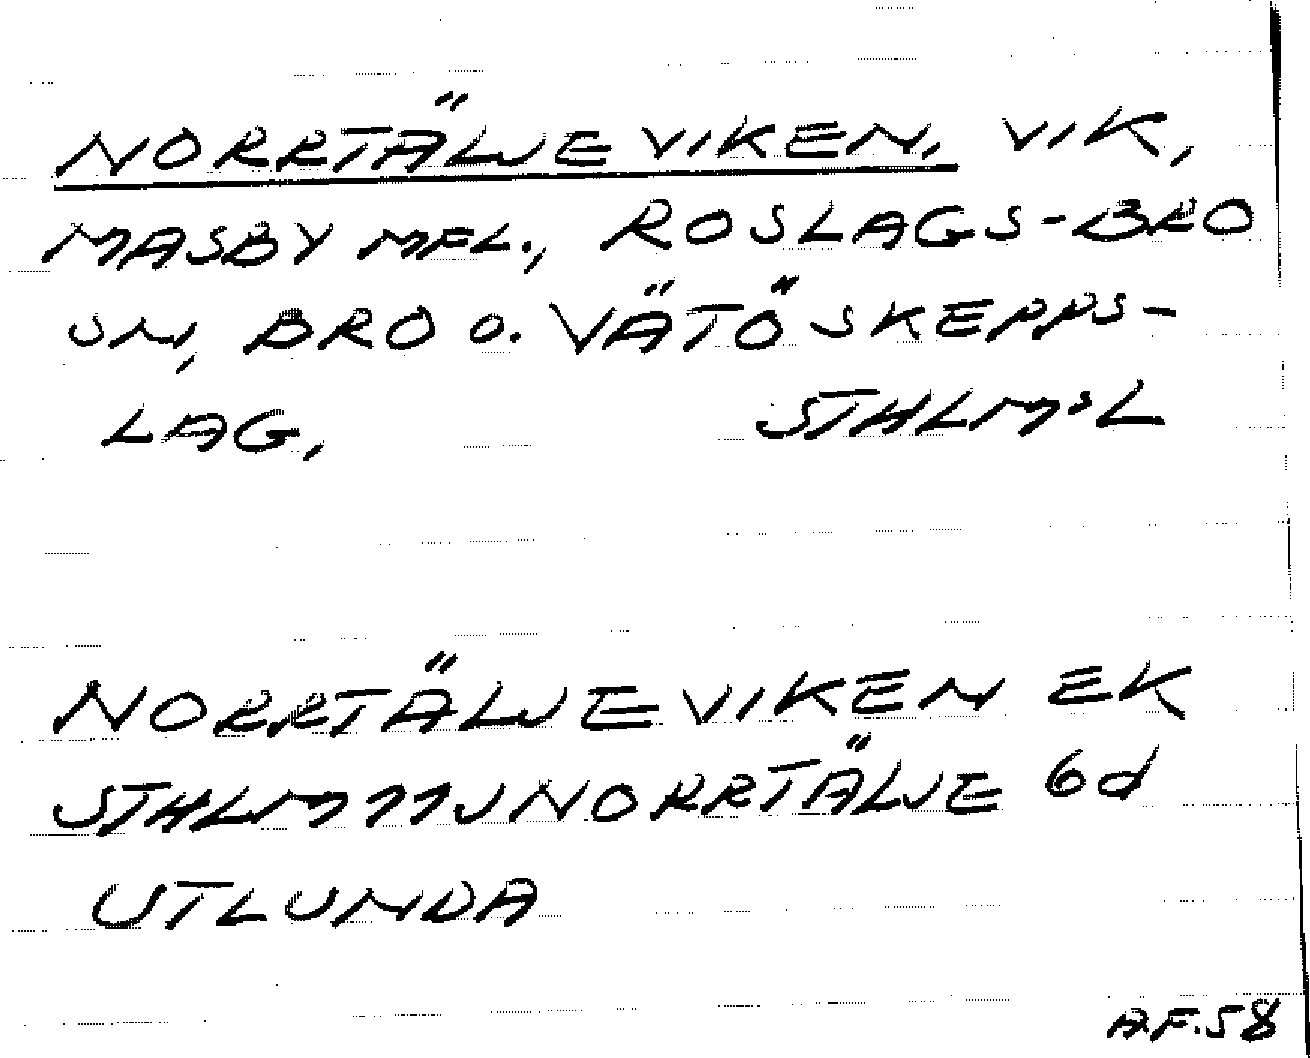 NORRTÄLJEVIKEN, VIK,
MASBY MFL., ROSLAGS-BRO
SN, BRO O. VÄTÖ SKEPPS-
LAG, STHLMSL
NORRTÄLJEVIKEN EK
STHLM 11J NORRTÄLJE 6d
UTLUNDA
A.F.58